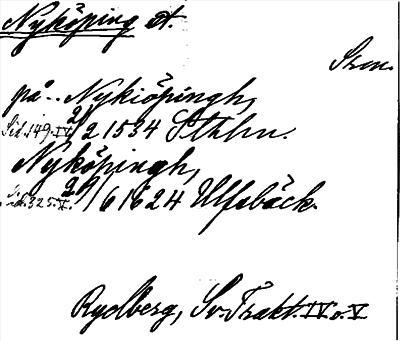 Nyköping st.
Srm.
på .. Nykiöpingh,
Sid. 149. IV. 2/2 1534 Sthlm.
Nyköpingh,
Sid. 325. V. 29/6 1624 Ulfsbäck.
Rydberg, Sv. Trakt. IV o. V